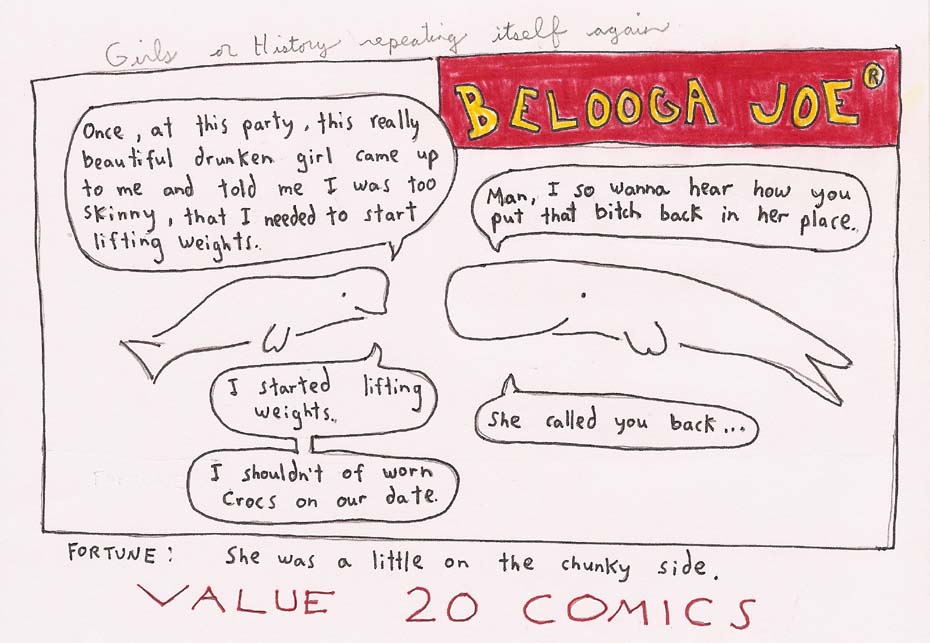 Girls or History repeating itself again
BELOOGA JOE®
Once, at this party, this really
beautiful drunken girl came up
to me and told me I was too
skinny, that I needed to start
lifting weights.
Man, I so wanna hear how you
put that bitch back in her place.
I started lifting
weights.
She called you back...
I shouldn't of worn
Crocs on our date.
FORTUNE: She was a little on the chunky side.
VALUE 20 COMICS